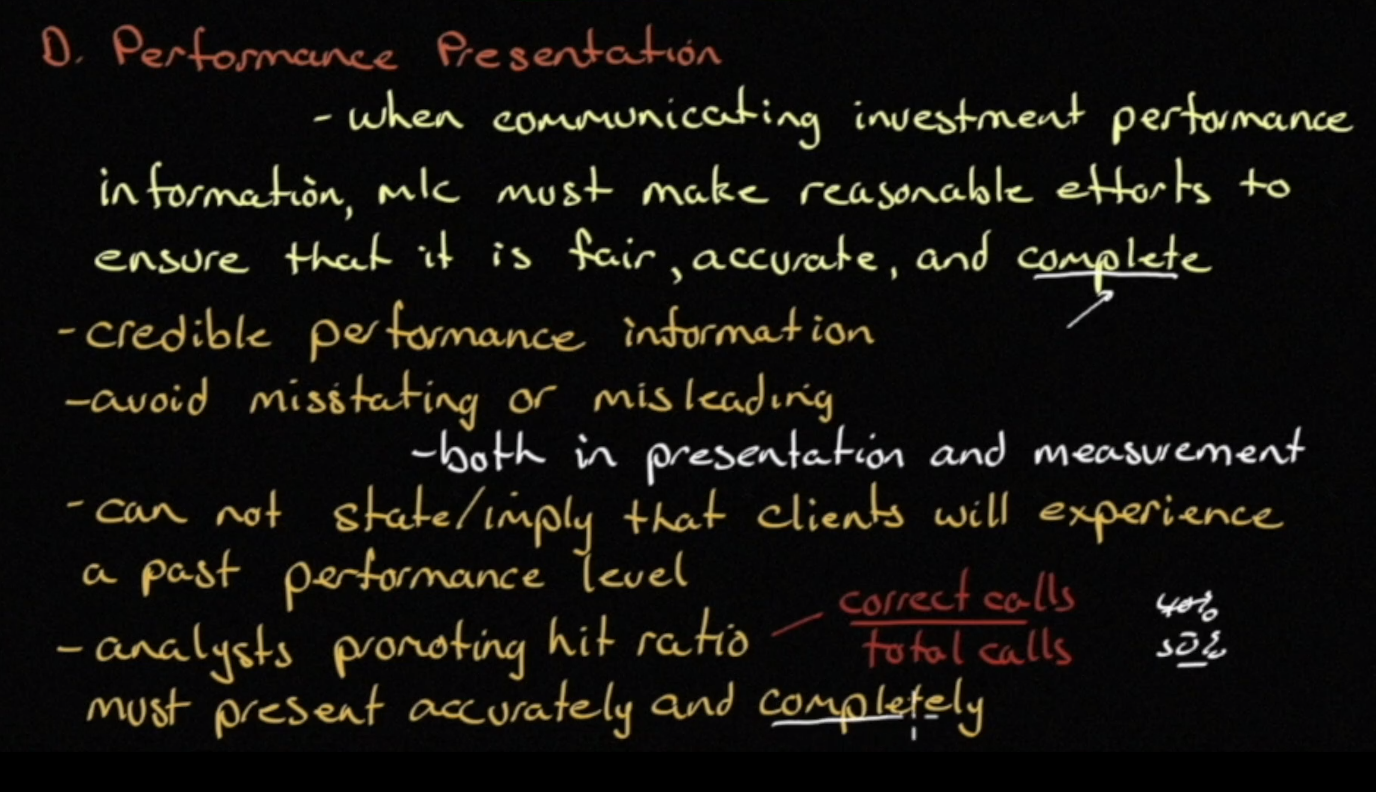 D. Performance Presentation
- when communicating investment performance
information, m/c must make reasonable efforts to
ensure that it is fair, accurate, and complete
- credible performance information
- avoid misstating or misleading
- both in presentation and measurement
- can not state/imply that clients will experience
a past performance level
- analysts promoting hit ratio
correct calls
total calls
40%
50%
must present accurately and completely